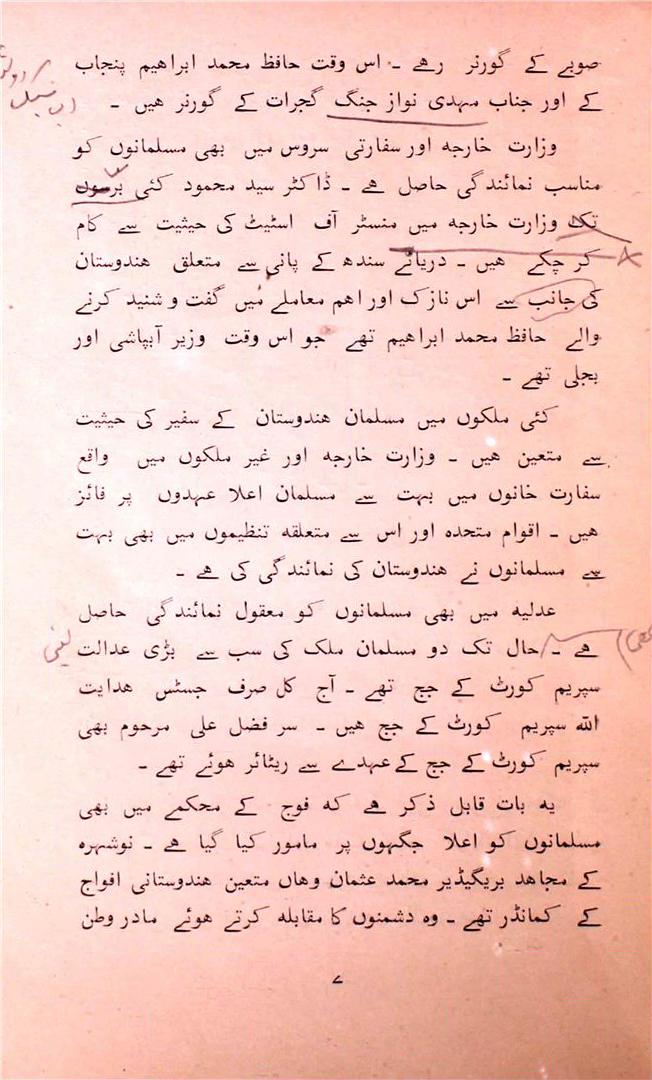 صوبے کے گورنر رہے ۔ اس وقت حافظ محمد ابراہیم پنجاب
کے اور جناب مہدی نواز جنگ گجرات کے گورنر ہیں ۔
وزارت خارجہ اور سفارتی سروس میں بھی مسلمانوں کو
مناسب نمائندگی حاصل ہے ۔ ڈاکٹر سید محمود کئی برسوں
تک وزارت خارجہ میں منسٹر آف اسٹیٹ کی حیثیت سے کام
کر چکے ہیں ۔ دریائے سندھ کے پانی سے متعلق ہندوستان
کی جانب سے اس نازک اور اہم معاملے میں گفت و شنید کرنے
والے حافظ محمد ابراہیم تھے جو اس وقت وزیر آبپاشی اور
بجلی تھے ۔
کئی ملکوں میں مسلمان ہندوستان کے سفیر کی حیثیت
سے متعین ہیں ۔ وزارت خارجہ اور غیر ملکوں میں واقع
سفارت خانوں میں بہت سے مسلمان اعلا عہدوں پر فائز
ہیں ۔ اقوام متحدہ اور اس سے متعلقہ تنظیموں میں بھی بہت
سے مسلمانوں نے ہندوستان کی نمائندگی کی ہے ۔
عدلیہ میں بھی مسلمانوں کو معقول نمائندگی حاصل
ہے ۔ حال تک دو مسلمان ملک کی سب سے بڑی عدالت یعنی
سپریم کورٹ کے جج تھے ۔ آج کل صرف جسٹس ہدایت
اللہ سپریم کورٹ کے جج ہیں ۔ سر فضل علی مرحوم بھی
سپریم کورٹ کے جج کے عہدے سے ریٹائر ہوئے تھے ۔
یہ بات قابل ذکر ہے کہ فوج کے محکمے میں بھی
مسلمانوں کو اعلا جگہوں پر مامور کیا گیا ہے ۔ نوشہرہ
کے مجاہد بریگیڈیر محمد عثمان وہاں متعین ہندوستانی افواج
کے کمانڈر تھے ۔ وہ دشمنوں کا مقابلہ کرتے ہوئے مادر وطن
۷